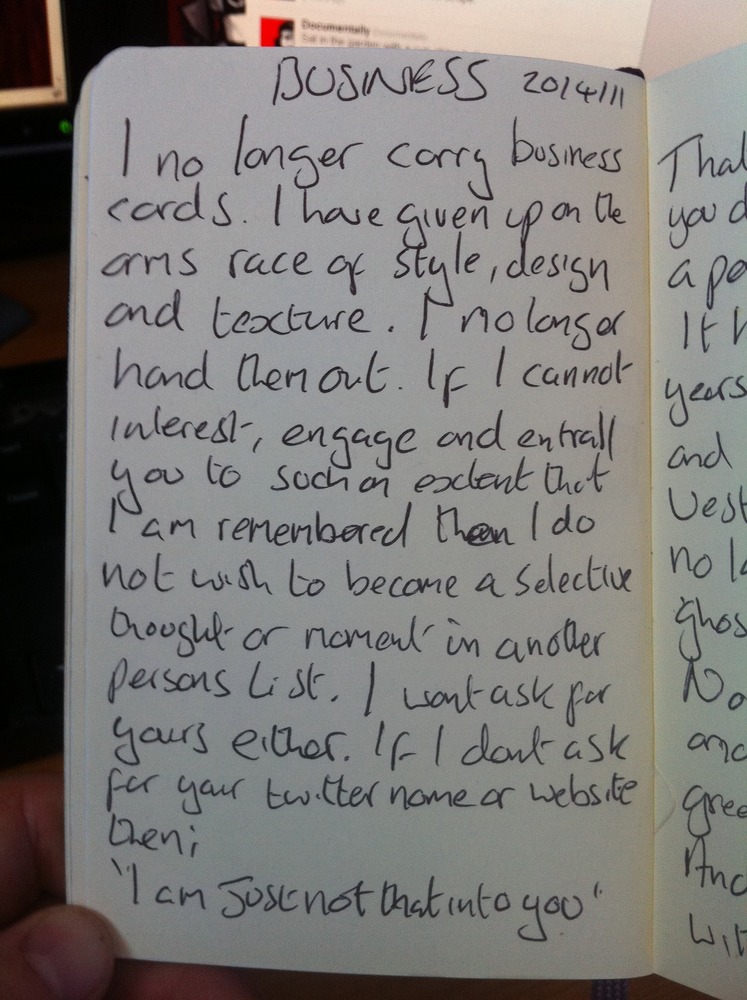 Documentally
BUSINESS 2014/11
I no longer carry business
cards. I have given up on the
arms race of style, design
and texture. I no longer
hand them out. If I cannot
interest, engage and entrall
you to such an extent that
I am remembered then I do
not wish to become a selective
thought or moment in another
persons list. I wont ask for
yours either. If I dont ask
for your twitter name or website
then;
"I am Just not that into you"
That
you d
a po
It h
years
and
Vest
no lo
ghos
No
and
gree
And
wit